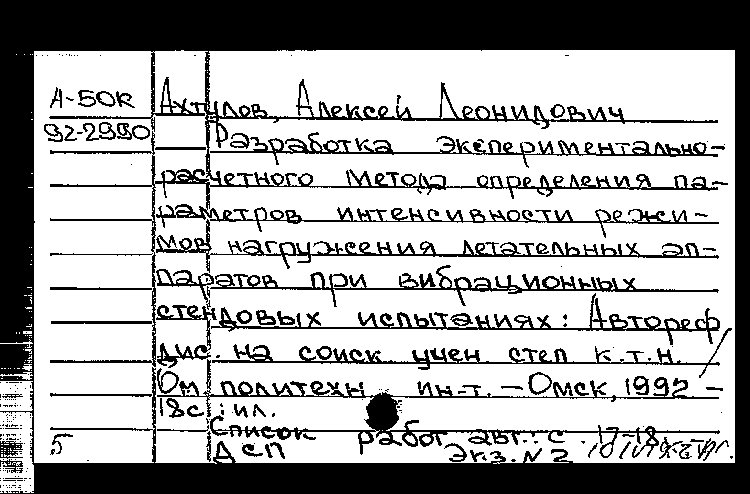 А-50к Ахтулов, Алексей Леонидович
92-2990 Разработка экспериментально-
расчетного метода определения па-
раметров интенсивности режи-
мов нагружения летательных ап-
паратов при вибрационных
стендовых испытаниях: Автореф
дис. на соиск учен степ к.т.н. /
Ом. политехн ин-т. - Омск, 1992 -
18с : ил.
Список работ авт.: с. 17-18.
5 ДСП Экз. N 2